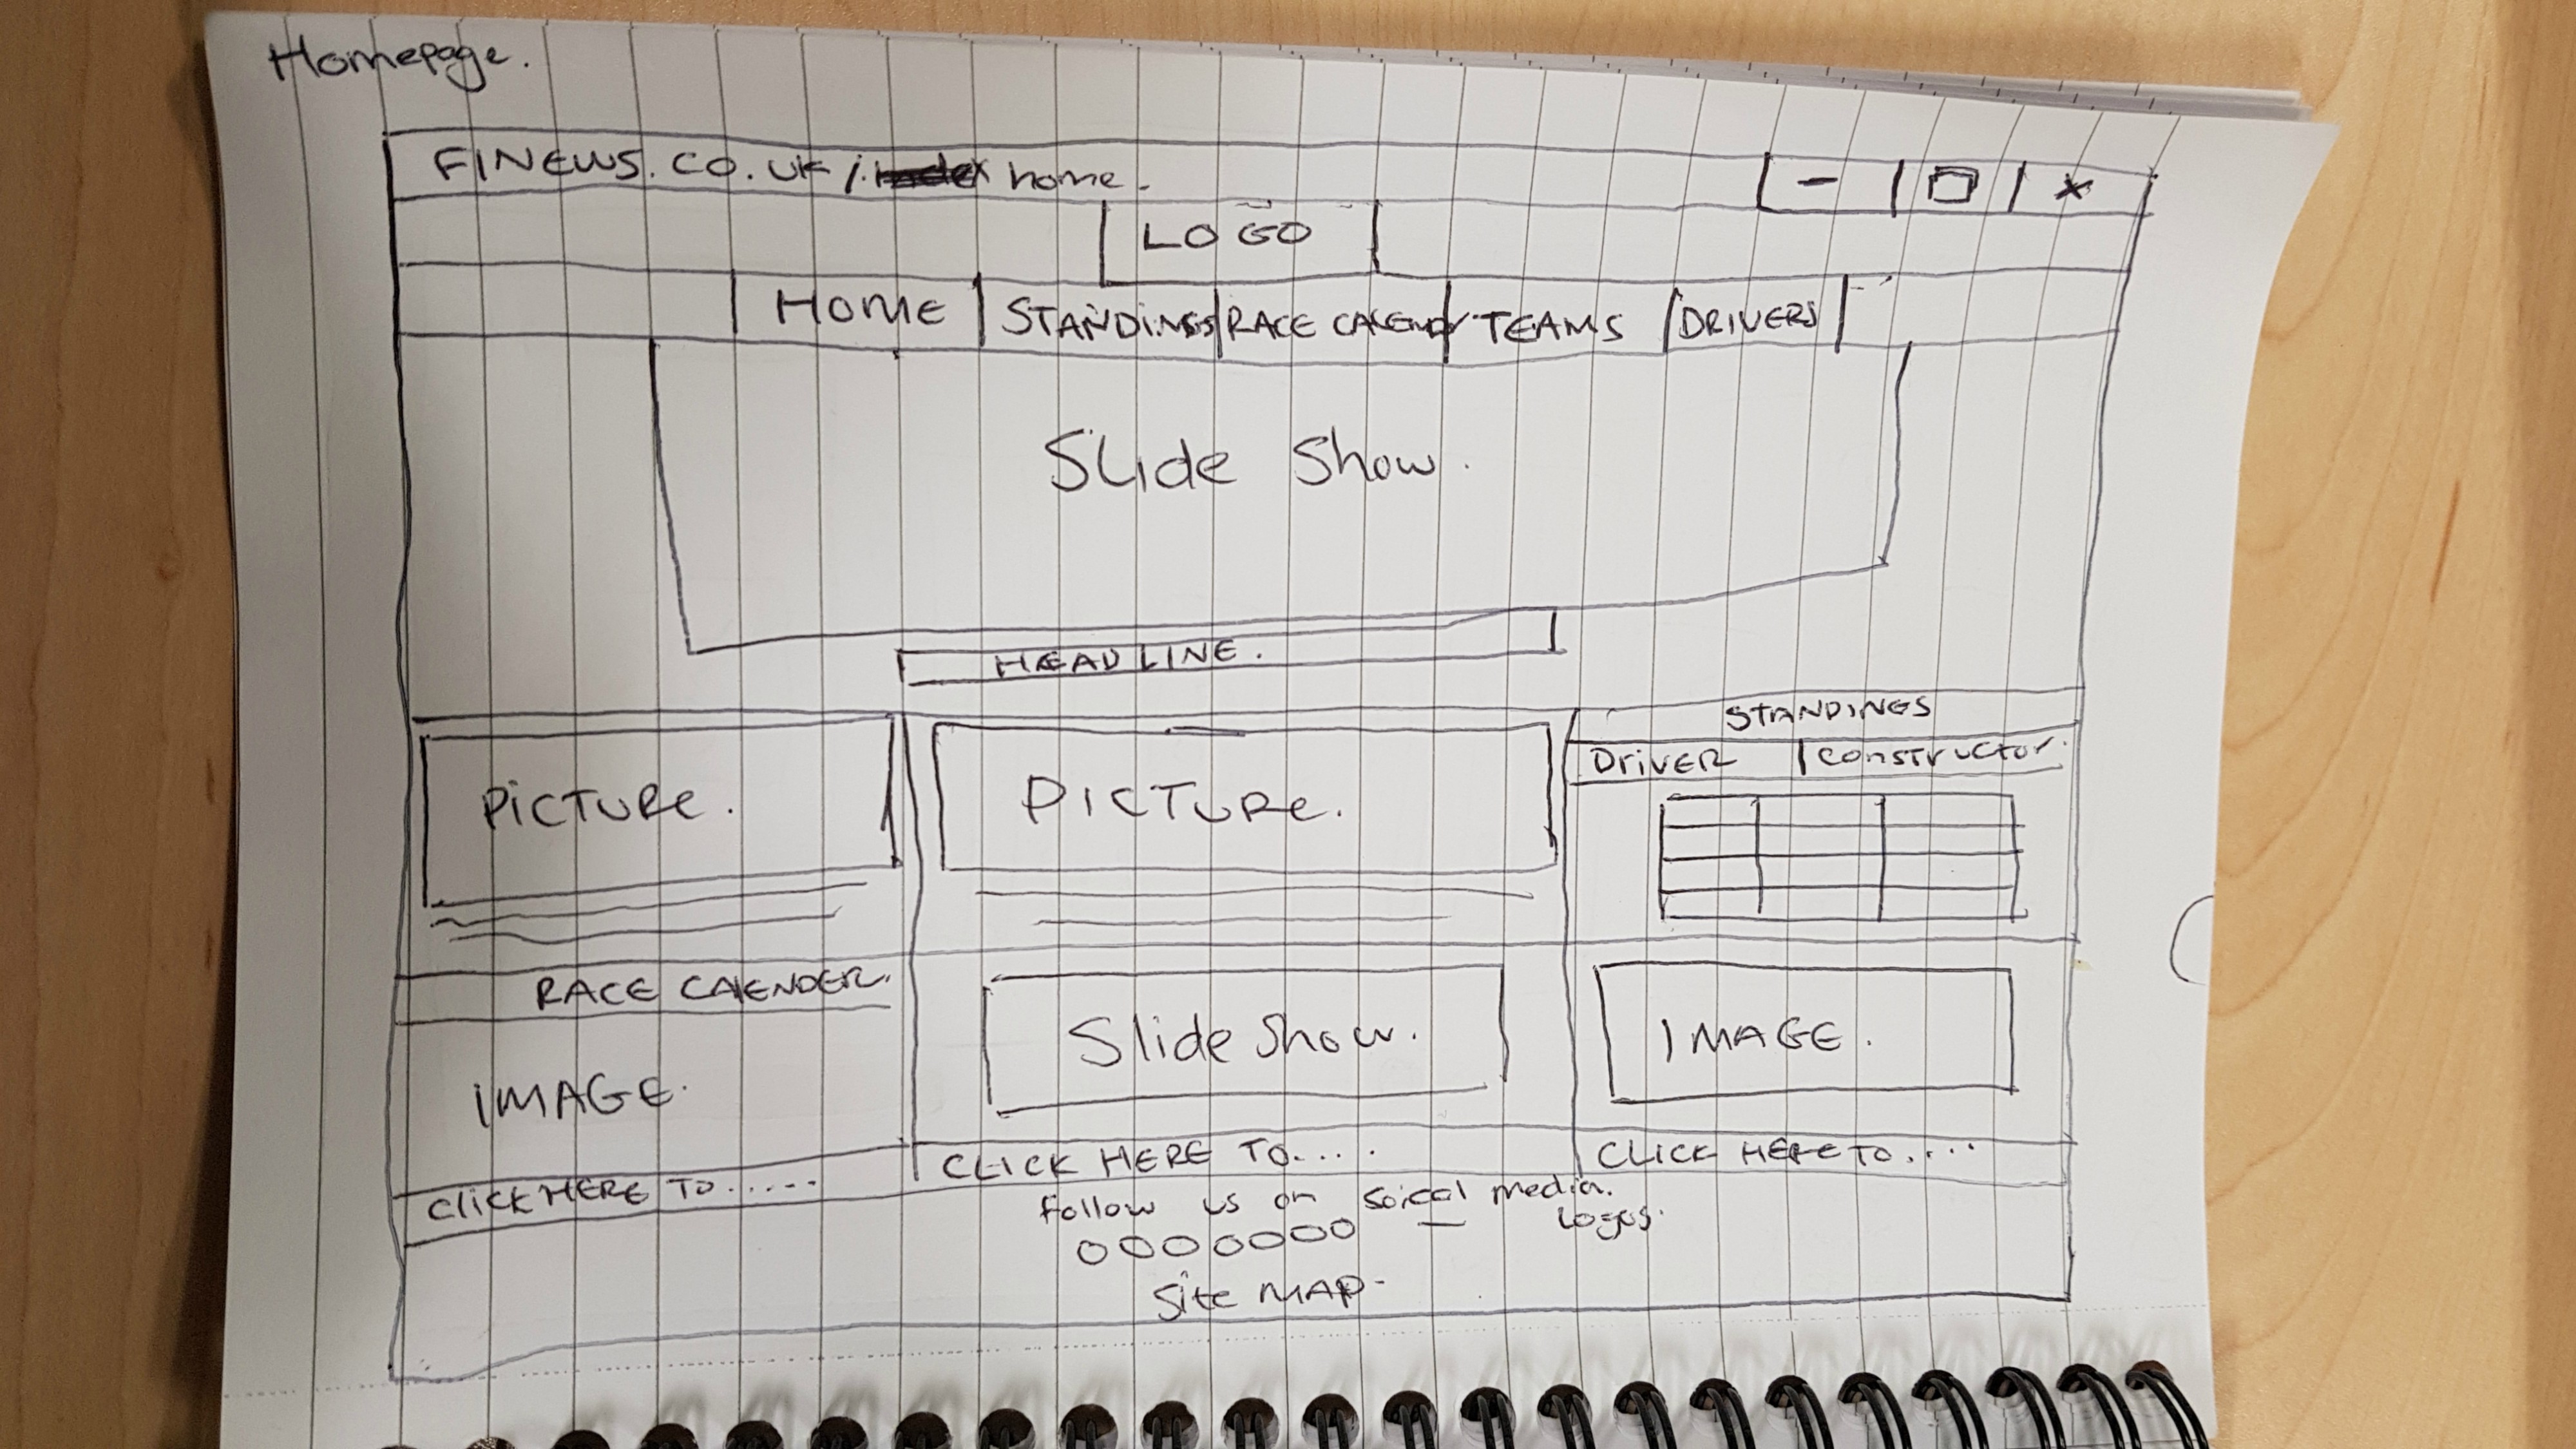 Homepage.
F1NEWS.CO.UK/index home.
- □ x
LOGO
HOME STANDINGS RACE CALENDR TEAMS DRIVERS
SLide Show.
HEADLINE.
STANDINGS
DRIVER Constructor.
PICTURE. PICTURE.
RACE CALENDER.
IMAGE. Slide Show. IMAGE.
CLICK HERE TO...... CLICK HERE TO..... CLICK HERE TO.....
Follow us on soical media.
Logos.
Site MAP-